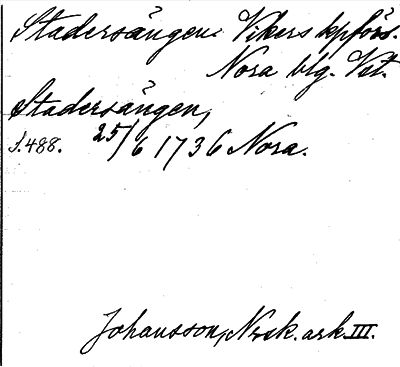 Stadersängen: Vikers kpförs.
Nora blg. Vst.
Stadersängen,
S.488. 25/6 1736 Nora.
Johansson, Nrsk. ark. III.